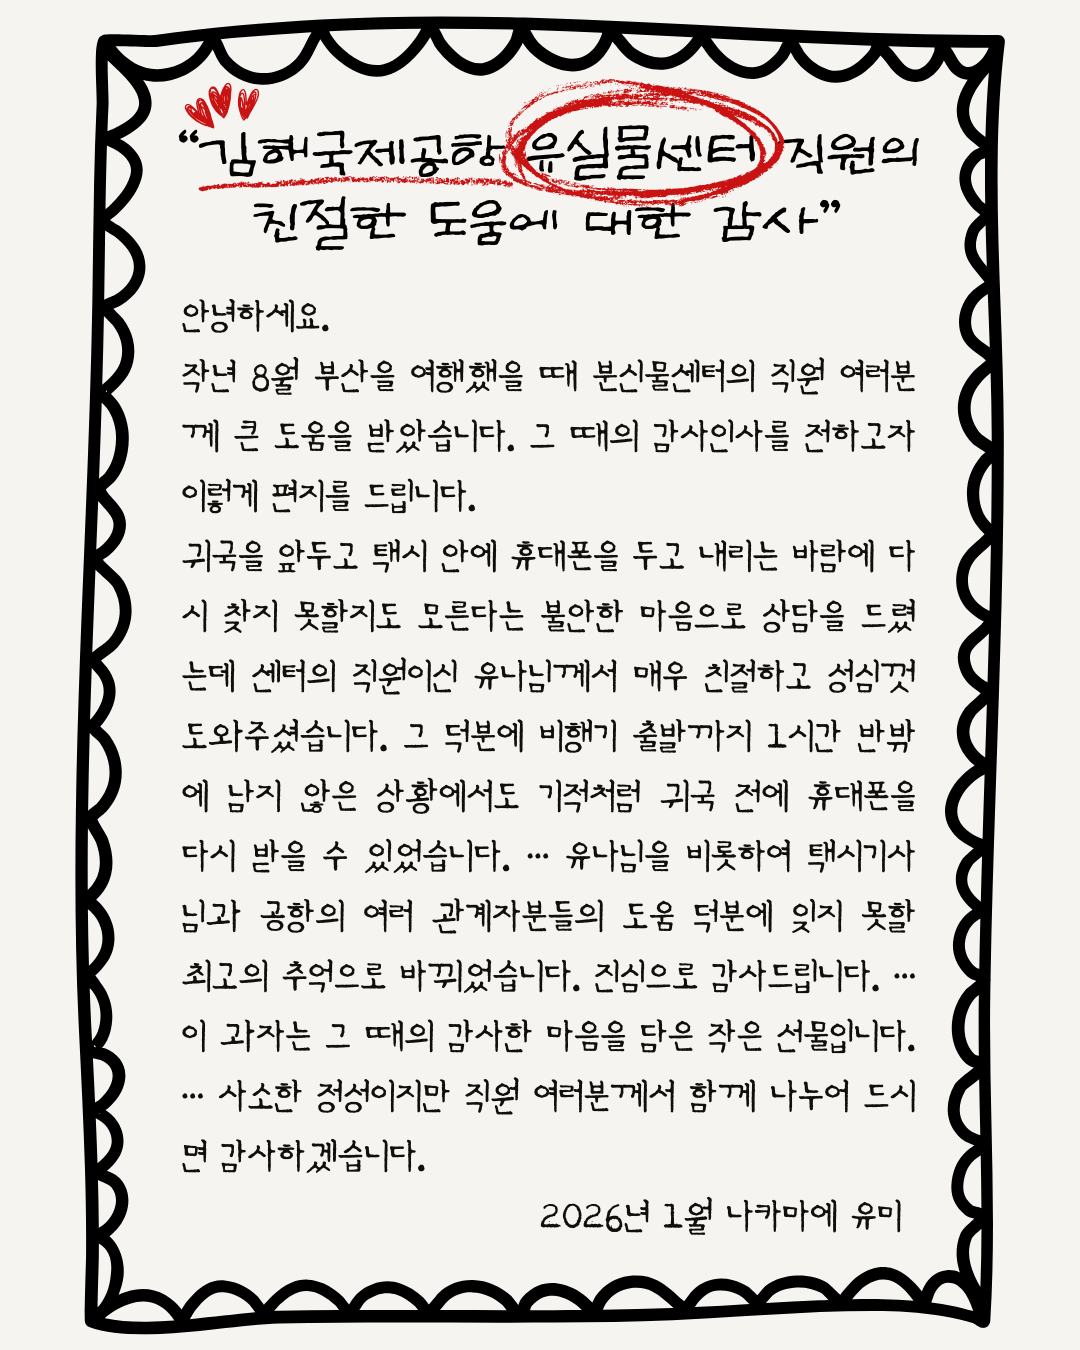 “김해국제공항 유실물센터 직원의
친절한 도움에 대한 감사”
안녕하세요.
작년 8월 부산을 여행했을 때 분신물센터의 직원 여러분
께 큰 도움을 받았습니다. 그 때의 감사인사를 전하고자
이렇게 편지를 드립니다.
귀국을 앞두고 택시 안에 휴대폰을 두고 내리는 바람에 다
시 찾지 못할지도 모른다는 불안한 마음으로 상담을 드렸
는데 센터의 직원이신 유나님께서 매우 친절하고 성심껏
도와주셨습니다. 그 덕분에 비행기 출발까지 1시간 반밖
에 남지 않은 상황에서도 기적처럼 귀국 전에 휴대폰을
다시 받을 수 있었습니다. … 유나님을 비롯하여 택시기사
님과 공항의 여러 관계자분들의 도움 덕분에 잊지 못할
최고의 추억으로 바뀌었습니다. 진심으로 감사드립니다. …
이 과자는 그 때의 감사한 마음을 담은 작은 선물입니다.
… 사소한 정성이지만 직원 여러분께서 함께 나누어 드시
면 감사하겠습니다.
2026년 1월 나카마에 유미